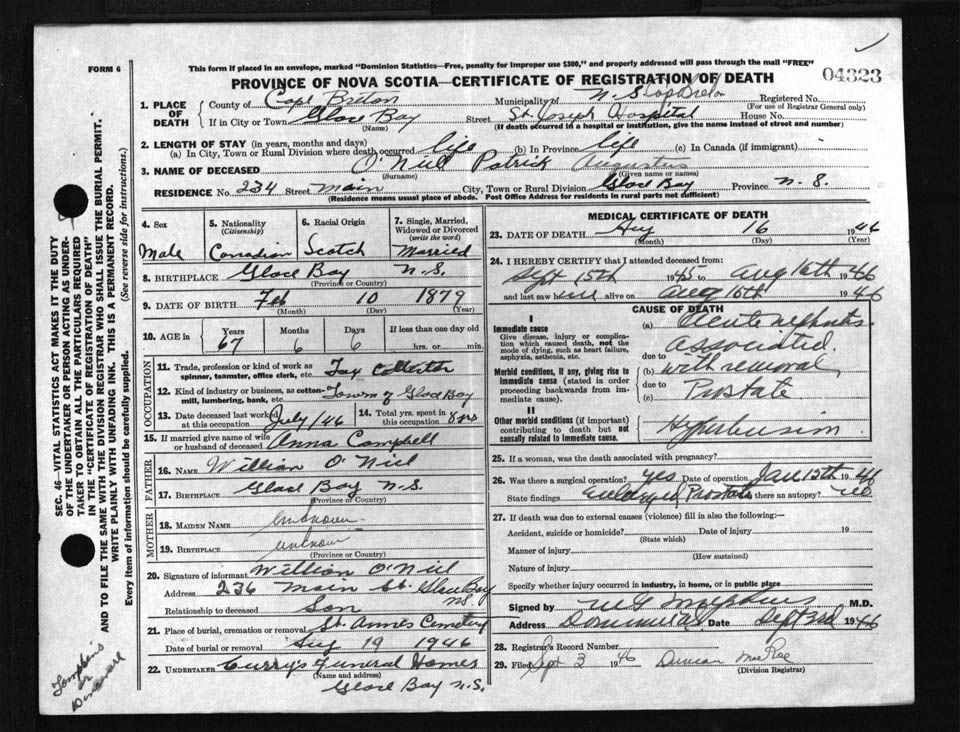 FORM 6
This form if placed in an envelope, marked "Dominion Statistics—Free, penalty for improper use $300," and properly addressed will pass through the mail "FREE"
PROVINCE OF NOVA SCOTIA—CERTIFICATE OF REGISTRATION OF DEATH
04323
1. PLACE OF DEATH
County of Cape Breton Municipality of N.S. Cape Breton Registered No.
(For use of Registrar General only)
If in City or Town Glace Bay Street St. Joseph Hospital House No.
(Name) (If death occurred in a hospital or institution, give the name instead of street and number)
2. LENGTH OF STAY (in years, months and days)
(a) In City, Town or Rural Division where death occurred life (b) In Province life (c) In Canada (if immigrant)
3. NAME OF DECEASED O'Niel Patrick Augustus
(Surname) (Given name or names)
RESIDENCE No. 234 Street Main City, Town or Rural Division Glace Bay Province N.S.
(Residence means usual place of abode. Post Office Address for residents in rural parts not sufficient)
SEC. 46—VITAL STATISTICS ACT MAKES IT THE DUTY
OF THE UNDERTAKER OR PERSON ACTING AS UNDER-
TAKER TO OBTAIN ALL THE PARTICULARS REQUIRED
IN THE "CERTIFICATE OF REGISTRATION OF DEATH"
AND TO FILE THE SAME WITH THE DIVISION REGISTRAR WHO SHALL ISSUE THE BURIAL PERMIT.
WRITE PLAINLY WITH UNFADING INK. THIS IS A PERMANENT RECORD.
Every item of information should be carefully supplied. (See reverse side for instructions.)
4. Sex
Male
5. Nationality
(Citizenship)
Canadian
6. Racial Origin
Scotch
7. Single, Married, Widowed or Divorced
(write the word)
Married
8. BIRTHPLACE Glace Bay N.S.
(Province or Country)
9. DATE OF BIRTH Feb 10 1879
(Month) (Day) (Year)
10. AGE in
Years Months Days If less than one day old
67 6 6 hrs. or min.
OCCUPATION
11. Trade, profession or kind of work as spinner, teamster, office clerk, etc. Tax Collector
12. Kind of industry or business, as cotton-mill, lumbering, bank, etc. Town of Glace Bay
13. Date deceased last worked at this occupation July/46
14. Total yrs. spent in this occupation 8 yrs
15. If married give name of wife or husband of deceased Anna Campbell
FATHER
16. NAME William O'Niel
17. BIRTHPLACE Glace Bay N.S.
(Province or Country)
MOTHER
18. MAIDEN NAME unknown
19. BIRTHPLACE unknown
(Province or Country)
20. Signature of informant William O'Niel
Address 236 Main St. Glace Bay NS.
Relationship to deceased Son
21. Place of burial, cremation or removal St. Annes Cemetery
Date of burial or removal Aug 19 1946
22. UNDERTAKER Curry's Funeral Homes
(Name and address)
Glace Bay N.S.
MEDICAL CERTIFICATE OF DEATH
23. DATE OF DEATH Aug 16 1946
(Month) (Day) (Year)
24. I HEREBY CERTIFY that I attended deceased from:
Sept 15th 1945 to Aug 16th 1946
and last saw him alive on Aug 16th 1946
CAUSE OF DEATH
I
Immediate cause
Give disease, injury or complication which caused death, not the mode of dying, such as heart failure, asphyxia, asthenia, etc.
(a) Acute nephritis
associated
due to
Morbid conditions, if any, giving rise to immediate cause (stated in order proceeding backwards from immediate cause).
(b) with removal
due to
(c) Prostate
II
Other morbid conditions (if important) contributing to death but not causally related to immediate cause.
Hypertension
25. If a woman, was the death associated with pregnancy?
26. Was there a surgical operation? yes Date of operation Jan 15th 1946
State findings Enlarged Prostate Was there an autopsy? no
27. If death was due to external causes (violence) fill in also the following:—
Accident, suicide or homicide? Date of injury 19
(State which)
Manner of injury
(How sustained)
Nature of injury
Specify whether injury occurred in industry, in home, or in public place
Signed by M.D.
Address Dominion Date Sept 3rd 1946
28. Registrar's Record Number
29. Filed Sept 3 1946 Duncan MacRae
(Division Registrar)
Tompkins
or